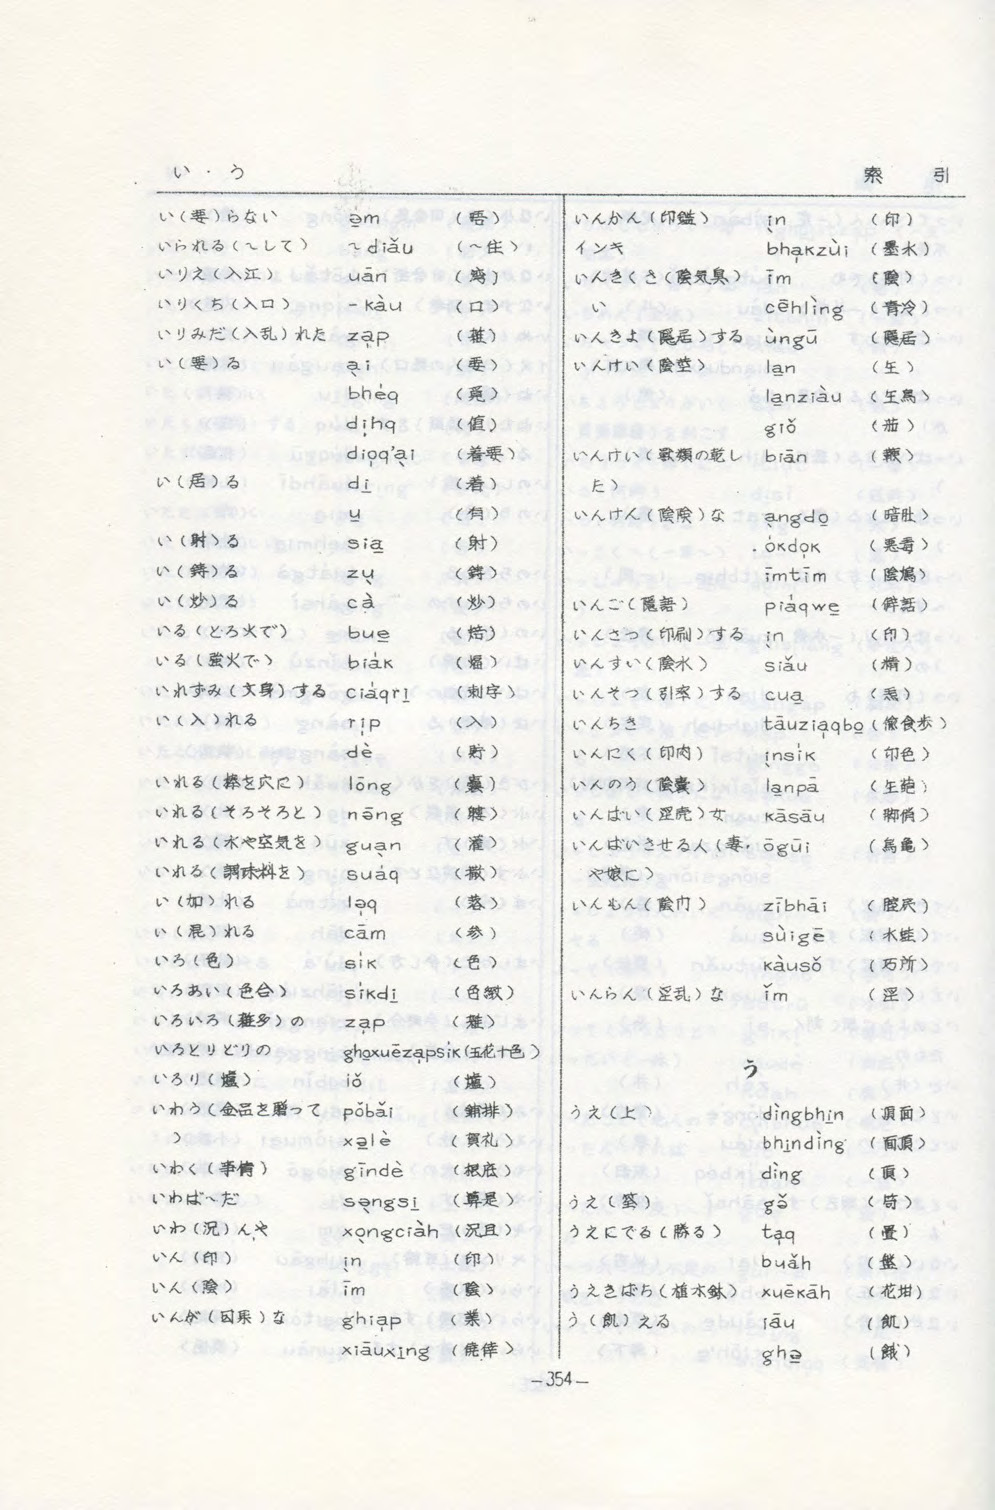 い・う
索引
い(要)らない ə̱m (唔)
いられる(～して) ～diǎu (～住)
いりえ(入江) uān (湾)
いりぐち(入口) -kàu (口)
いりみだ(入乱)れた zạp (雑)
い(要)る ại (要)
bhéq (覓)
dịhq (值)
diọq'ại (着要)
い(居)る di̱ (着)
u̱ (有)
い(射)る sia̱ (射)
い(鋳)る zụ (鋳)
い(炒)る cà (炒)
いる(とろ火で) bue̱ (焙)
いる(強火で) biák (煏)
いれずみ(文身)する ciáqri̱ (刺字)
い(入)れる rịp (入)
dè (貯)
いれる(棒を穴に) lōng
いれる(そろそろと) nəng
いれる(水や空気を) guạn (灌)
いれる(調味料を) suáq (撒)
い(加)れる lə̣q (落)
い(混)れる cām (参)
いろ(色) sík (色)
いろあい(色合) síkdi̱ (色緻)
いろいろ(雑多)の zạp (雑)
いろとりどりの gho̱xuēzạpsík (五花十色)
いろり(爐) iǒ (爐)
いわう(金品を贈って pǒbǎi (鋪排)
) xə̱lè (賀礼)
いわく(事情) gīndè (根底)
いわば～だ sə̣ngsi̱ (算是)
いわ(況)んや xọngciàh (況且)
いん(印) ịn (印)
いん(陰) īm (陰)
いんが(因果)な ghiạp (業)
xiāuxi̱ng (僥倖)
いんかん(印鑑) ịn (印)
インキ bhạkzùi (墨水)
いんきくさ(陰気臭) īm (陰)
い cēhlìng (青冷)
いんきよ(隠居)する ùngu (隠居)
いんけい(陰茎) lạn (生)
lạnziàu (生鳥)
giǒ (茄)
いんけい(歌類の乾し biān (鞭)
た)
いんけん(陰険)な ạngdo̱ (暗肚)
ókdọk (悪毒)
īmtīm (陰鴆)
いんご(隠語) piáqwe̱ (僻話)
いんさつ(印刷)する ịn (印)
いんすい(陰水) siǎu
いんそつ(引率)する cuạ
いんちき tāuziạqbo̱ (偸食歩)
いんにく(印肉) ịnsík (印色)
いんのう(陰嚢) lạnpā
いんばい(淫売)女 kāsāu (脚俏)
いんばいさせる人(妻, ōgūi (烏亀)
や娘に)
いんもん(陰門) zībhāi (膣屄)
sùigē (水蛙)
kàusǒ (巧所)
いんらん(淫乱)な ǐm (淫)
う
うえ(上) dìngbhi̱n (頂面)
bhi̱ndìng (面頂)
dìng (頂)
うえ(筌) gə̌ (笱)
うえにでる(勝る) tạq (疊)
buǎh
うえきばち(植木鉢) xuēkāh (花坩)
う(飢)える iāu (飢)
ghə̱ (餓)
-354-